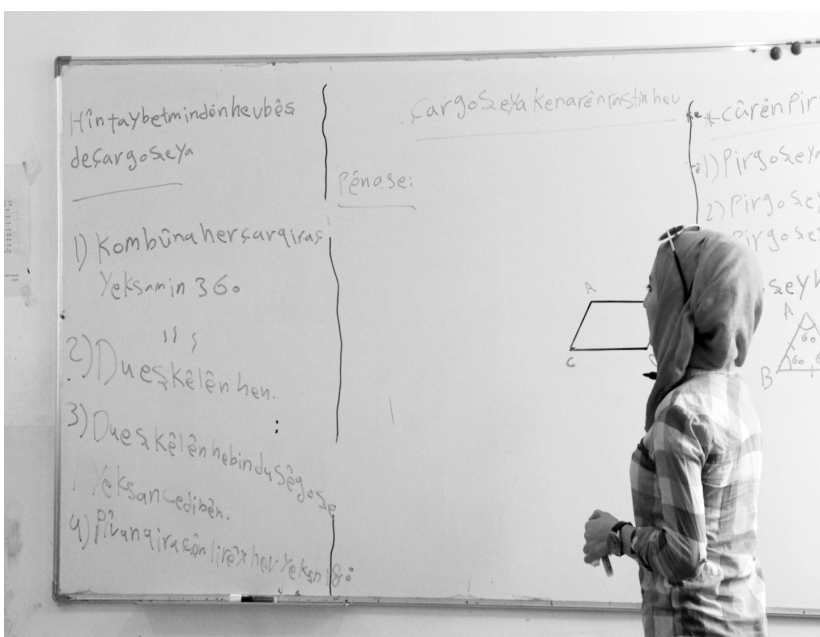 Hîn taybetmindên heubês
deçargoşeya
1) Kombûna herçarqiraş
Yeksamin 360
2) Du eşkêlên hen.
3) Du eşkêlên hebin du sêgoşe
Yeksan cedibên.
4) Pîvanqiraşên lirêx hev Yeksn 180
Çargoşeya Kenarên rastin hev
Pênase:
A
C
* cûrên Pir
1) Pirgoşeya
2) Pirgoşey
Pirgoşey
A
60
B 60